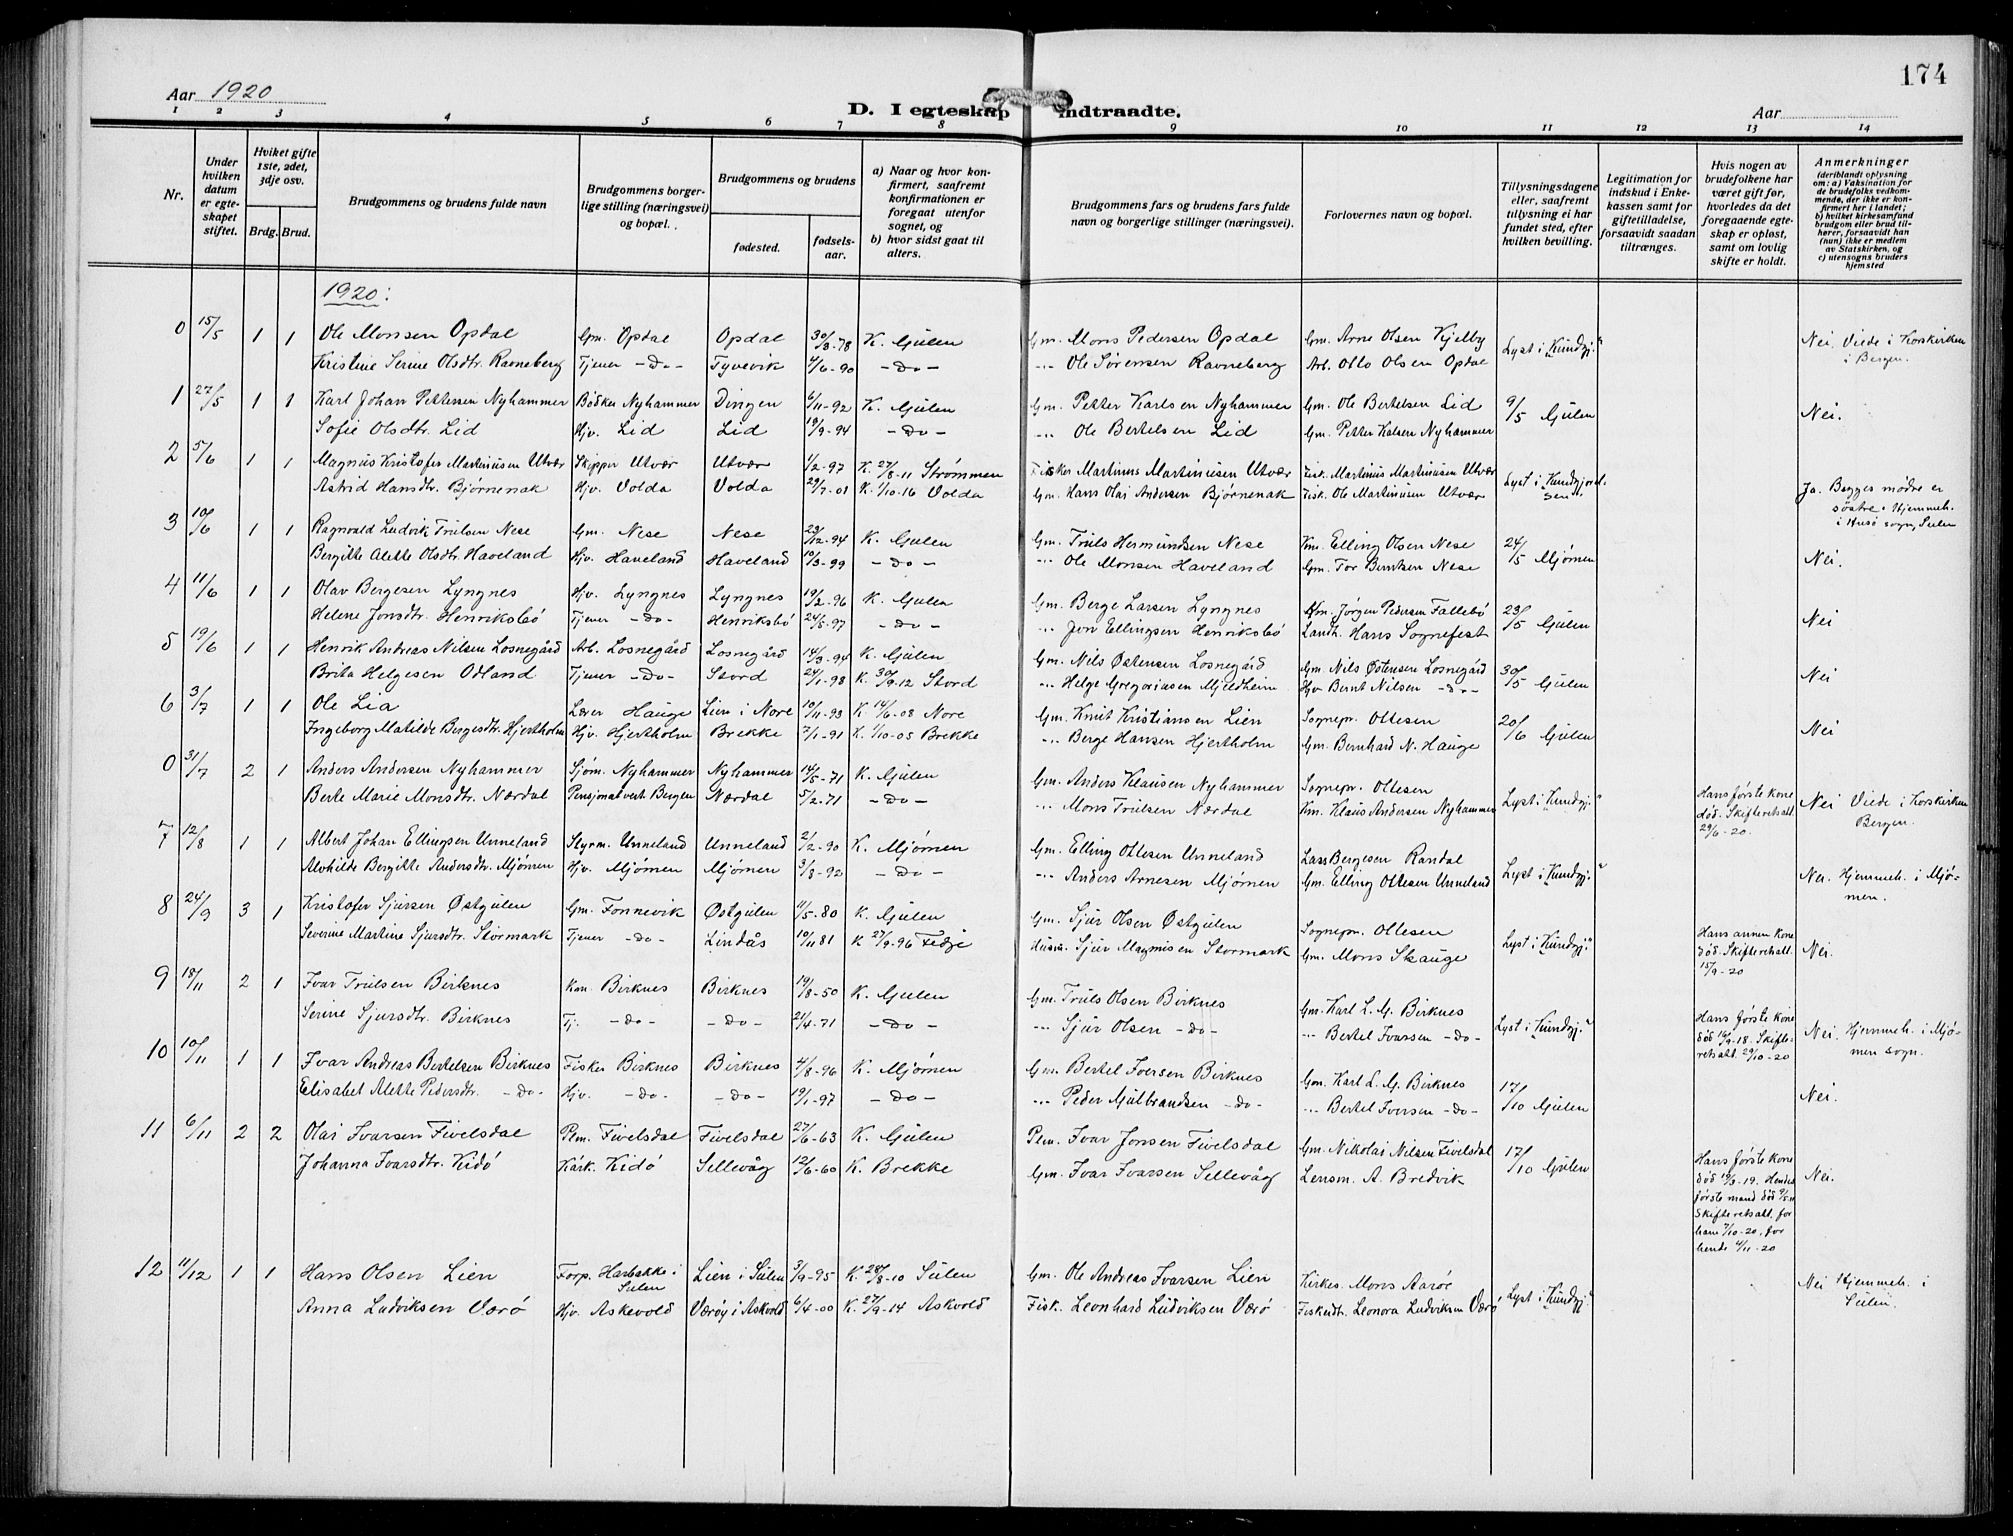 174
Aar 1920
D. I egteskap indtraadte.
Aar
1 2 3 4 5 6 7 8 9 10 11 12 13 14
Nr.
Under hvilken datum er egteskapet stiftet.
Hviket gifte 1ste, 2det, 3dje osv.
Brdg. Brud.
Brudgommens og brudens fulde navn
Brudgommens borgerlige stilling (næringsvei) og bopæl.
Brudgommens og brudens
fødested.
fødselsaar.
a) Naar og hvor konfirmert, saafremt konfirmationen er foregaat utenfor sognet, og
b) hvor sidst gaat til alters.
Brudgommens fars og brudens fars fulde navn og borgerlige stillinger (næringsvei).
Forlovernes navn og bopæl.
Tillysningsdagene eller, saafremt tillysning ei har fundet sted, efter hvilken bevilling.
Legitimation for indskud i Enkekassen samt for giftetilladelse, forsaavidt saadan tiltrænges.
Hvis nogen av brudefolkene har været gift før, hvorledes da det foregaaende egteskap er opløst, samt om lovlig skifte er holdt.
Anmerkninger (deriblandt oplysning om: a) Vaksination for de brudefolks vedkommende, der ikke er konfirmert her i landet; b) hvilket kirkesamfund brudgom eller brud tilhører, forsaavidt han (hun) ikke er medlem av Statskirken, og c) utensogns bruders hjemsted
1920:
0 15/5 1 1 Ole Monsen Opdal Gm. Opdal Opdal 30/3-78 K. Gulen Gm. Mons Pedersen Opdal Gm. Arne Olsen Kjelby Lyst i "Kundgj." Nei. Viede i Korskirken i Bergen.
Kristine Serine Olsdtr. Ravneberg Tjener -Do- Tyvevik 4/6-90 -Do- "- Ole Sørensen Ravneberg Arb. Otto Olsen Opdal
1 27/5 1 1 Karl Johan Pettersen Nyhammer Bødker Nyhammer Dingen 6/11-92 K. Gulen Gm. Petter Karlsen Nyhammer Gm. Ole Bertelsen Lid 9/5 Gulen Nei.
Sofie Olsdtr. Lid Hjv. Lid Lid 19/9-94 -Do- "- Ole Bertelsen Lid Gm. Petter Kalsen Nyhammer
2 5/6 1 1 Magnus Kristofer Martinusen Utvær Skipper Utvær Utvær 1/2-97 K. 27/8-11 Strømmen Fisker Martinus Martinusen Utvær Fisk. Martinus Martinusen Utvær Lyst i "Kundgjørelsen". Ja. Begges mødre er søstre. Hjemmeh. i Husø sogn, Sulen
Astrid Hansdtr. Bjørnenak Hjv. Volda Volda 29/7-01 K. 1/10-16 Volda Gm. Hans Olai Andersen Bjørnenak Fisk. Ole Martinusen Utvær
3 10/6 1 1 Ragnvald Ludvik Trulsen Nese Gm. Nese Nese 23/12-94 K. Gulen Gm. Truls Hermundsen Nese Km. Elling Olsen Nese 24/5 Mjømen Nei.
Bergitte Alette Olsdtr. Haveland Hjv. Haveland Haveland 10/3-99 -Do- "- Ole Monsen Haveland Gm. Tor Berntsen Nese
4 11/6 1 1 Olav Bergesen Lyngnes Hjv. Lyngnes Lyngnes 19/2-96 K. Gulen Gm. Berge Larsen Lyngnes Gm. Jørgen Pedersen Fallebø 23/5 Gulen Nei
Helene Jonsdtr. Henriksbø Tjener -Do- Henriksbø 24/5-97 -Do- "- Jon Ellingsen Henriksbø Landh. Hans Sognefest
5 19/6 1 1 Henrik Andreas Nilsen Losnegård Arb. Losnegård Losnegård 14/3-94 K. Gulen Gm. Nils Østensen Losnegård Gm. Nils Østensen Losnegård 30/5 Gulen Nei
Brita Helgesen Odland Tjener -Do- Stord 24/1-98 K. 30/9-12 Stord "- Helge Gregoriusen Mjeldheim Hjv Bernt Nilsen -Do-
6 3/7 1 1 Ole Lia Lærer Hauge Lien i Nore 10/11-93 K 14/6-08 Nore Gm. Knut Kristiansen Lien Sognepr. Ottesen 20/6 Gulen Nei
Ingeborg Matilde Bergesdtr. Hjertholm Hjv. Hjertholm Brekke 7/1-91 K. 1/10-05 Brekke "- Berge Hansen Hjertholm Gm. Bernhard N. Hauge
0 31/7 2 1 Anders Andersen Nyhammer Sjøm. Nyhammer Nyhammer 14/5-71 K. Gulen Gm. Anders Klausen Nyhammer Sognepr. Ottesen Lyst i "Kundgj." Hans første kone død. Skifteretsatt. 29/6-20. Nei Viede i Korskirken Bergen.
Berte Marie Monsdtr. Nærdal Pensjonatvert. Bergen Nærdal 5/2-71 -Do- "- Mons Trulsen Nærdal Km. Klaus Andersen Nyhammer
7 12/8 1 1 Albert Johan Ellingsen Unneland Styrm. Unneland Unneland 2/2-90 K. Mjømen Gm. Elling Ottesen Unneland Lars Bergesen Randal Lyst i "Kundgj." Nei. Hjemmeh. i Mjømen.
Alvhilde Bergitte Andersdtr. Mjømen Hjv. Mjømen Mjømen 3/8-92 -Do- "- Anders Arnesen Mjømen Gm. Elling Ottesen Unneland
8 24/9 3 1 Kristofer Sjursen Østgulen Gm. Fonnevik Østgulen 11/5-80 K. Gulen Gm. Sjur Olsen Østgulen Sognepr. Ottesen Lyst i "Kundgj." Hans annen kone død. Skifteretsatt. 15/9-20 Nei.
Severine Martine Sjursdtr. Stormark Tjener -Do- Lindås 10/11 81 K 27/9-96 Fedje Husm. Sjur Magnusen Stormark Gm. Mons Skauge
9 18/11 2 1 Ivar Trulsen Birknes Kan. Birknes Birknes 19/8-50 K. Gulen Gm. Truls Olsen Birknes Gm. Karl L. G. Birknes Lyst i "Kundgj." Hans første kone død 14/9-18. Skifteretsatt. 29/10-20 Nei. Hjemmeh. i Mjømen sogn.
Serine Sjursdtr. Birknes Tj. -Do- -Do- 21/4-71 -Do- "- Sjur Olsen -Do- "- Bertel Ivarsen -Do-
10 10/11 1 1 Ivar Andreas Bertelsen Birknes Fisker Birknes Birknes 4/8-96 K. Mjømen Gm. Bertel Iversen Birknes Gm. Karl L. G. Birknes 17/10 Gulen Nei.
Elisabet Mette Pedersdtr. -Do- Hjv. -Do- -Do- 19/1-97 -Do- "- Peder Gulbrandsen -Do- "- Bertel Iversen -Do-
11 6/11 2 2 Olai Ivarsen Fivelsdal Plm. Fivelsdal Fivelsdal 27/6-63 K. Gulen Plm. Ivar Jonsen Fivelsdal Gm. Nikolai Nilsen Fivelsdal 17/10 Gulen Hans første kone død 19/3-19. Hendes første mand død 9/5-11 Skifteretsatt. for ham 7/10-20, for hende 4/11-20 Nei.
Johanna Ivarsdtr. Kidø Kårk. Kidø Sellevåg 12/6-60 K. Brekke Gm. Ivar Ivarsen Sellevåg Lensm. A. Bredvik
12 11/12 1 1 Hans Olsen Lien Forp. Harbakke i Sulen Lien i Sulen 3/9-95 K. 28/8-10 Sulen Gm. Ole Andreas Ivarsen Lien Kirkes. Mons Aarøe Lyst i "Kundgj." Nei Hjemmeh. i Sulen.
Anna Ludviksen Værø Hjv. Askevold Værøy i Askvold 6/4-00 K. 27/9-14 Askvold Fisk. Leonhard Ludviksen Værø Fiskerdtr. Leonora Ludviksen Værø